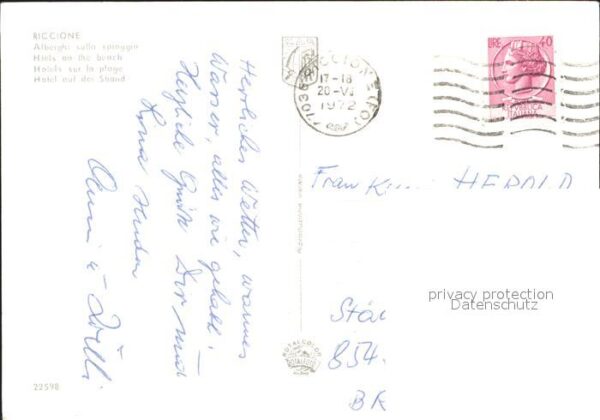 RICCIONE
Alberghi sulla spiaggia
Hôtels on the beach
Hotels sur la plage
Hotel auf der Strand
Herrliches Wetter, warmes
Wasser, alles wie gehabt!
Herzliche Grüße Dir und
Anni u. Willi
22598
Riproduzione vietata
ROTALCOLOR
ROTALFOTO
RICCIONE (FO)
17-18
20-VI
1972
LIRE 70
ITALIANA
Frau K HERALD
privacy protection
Datenschutz
Stä
854
BR